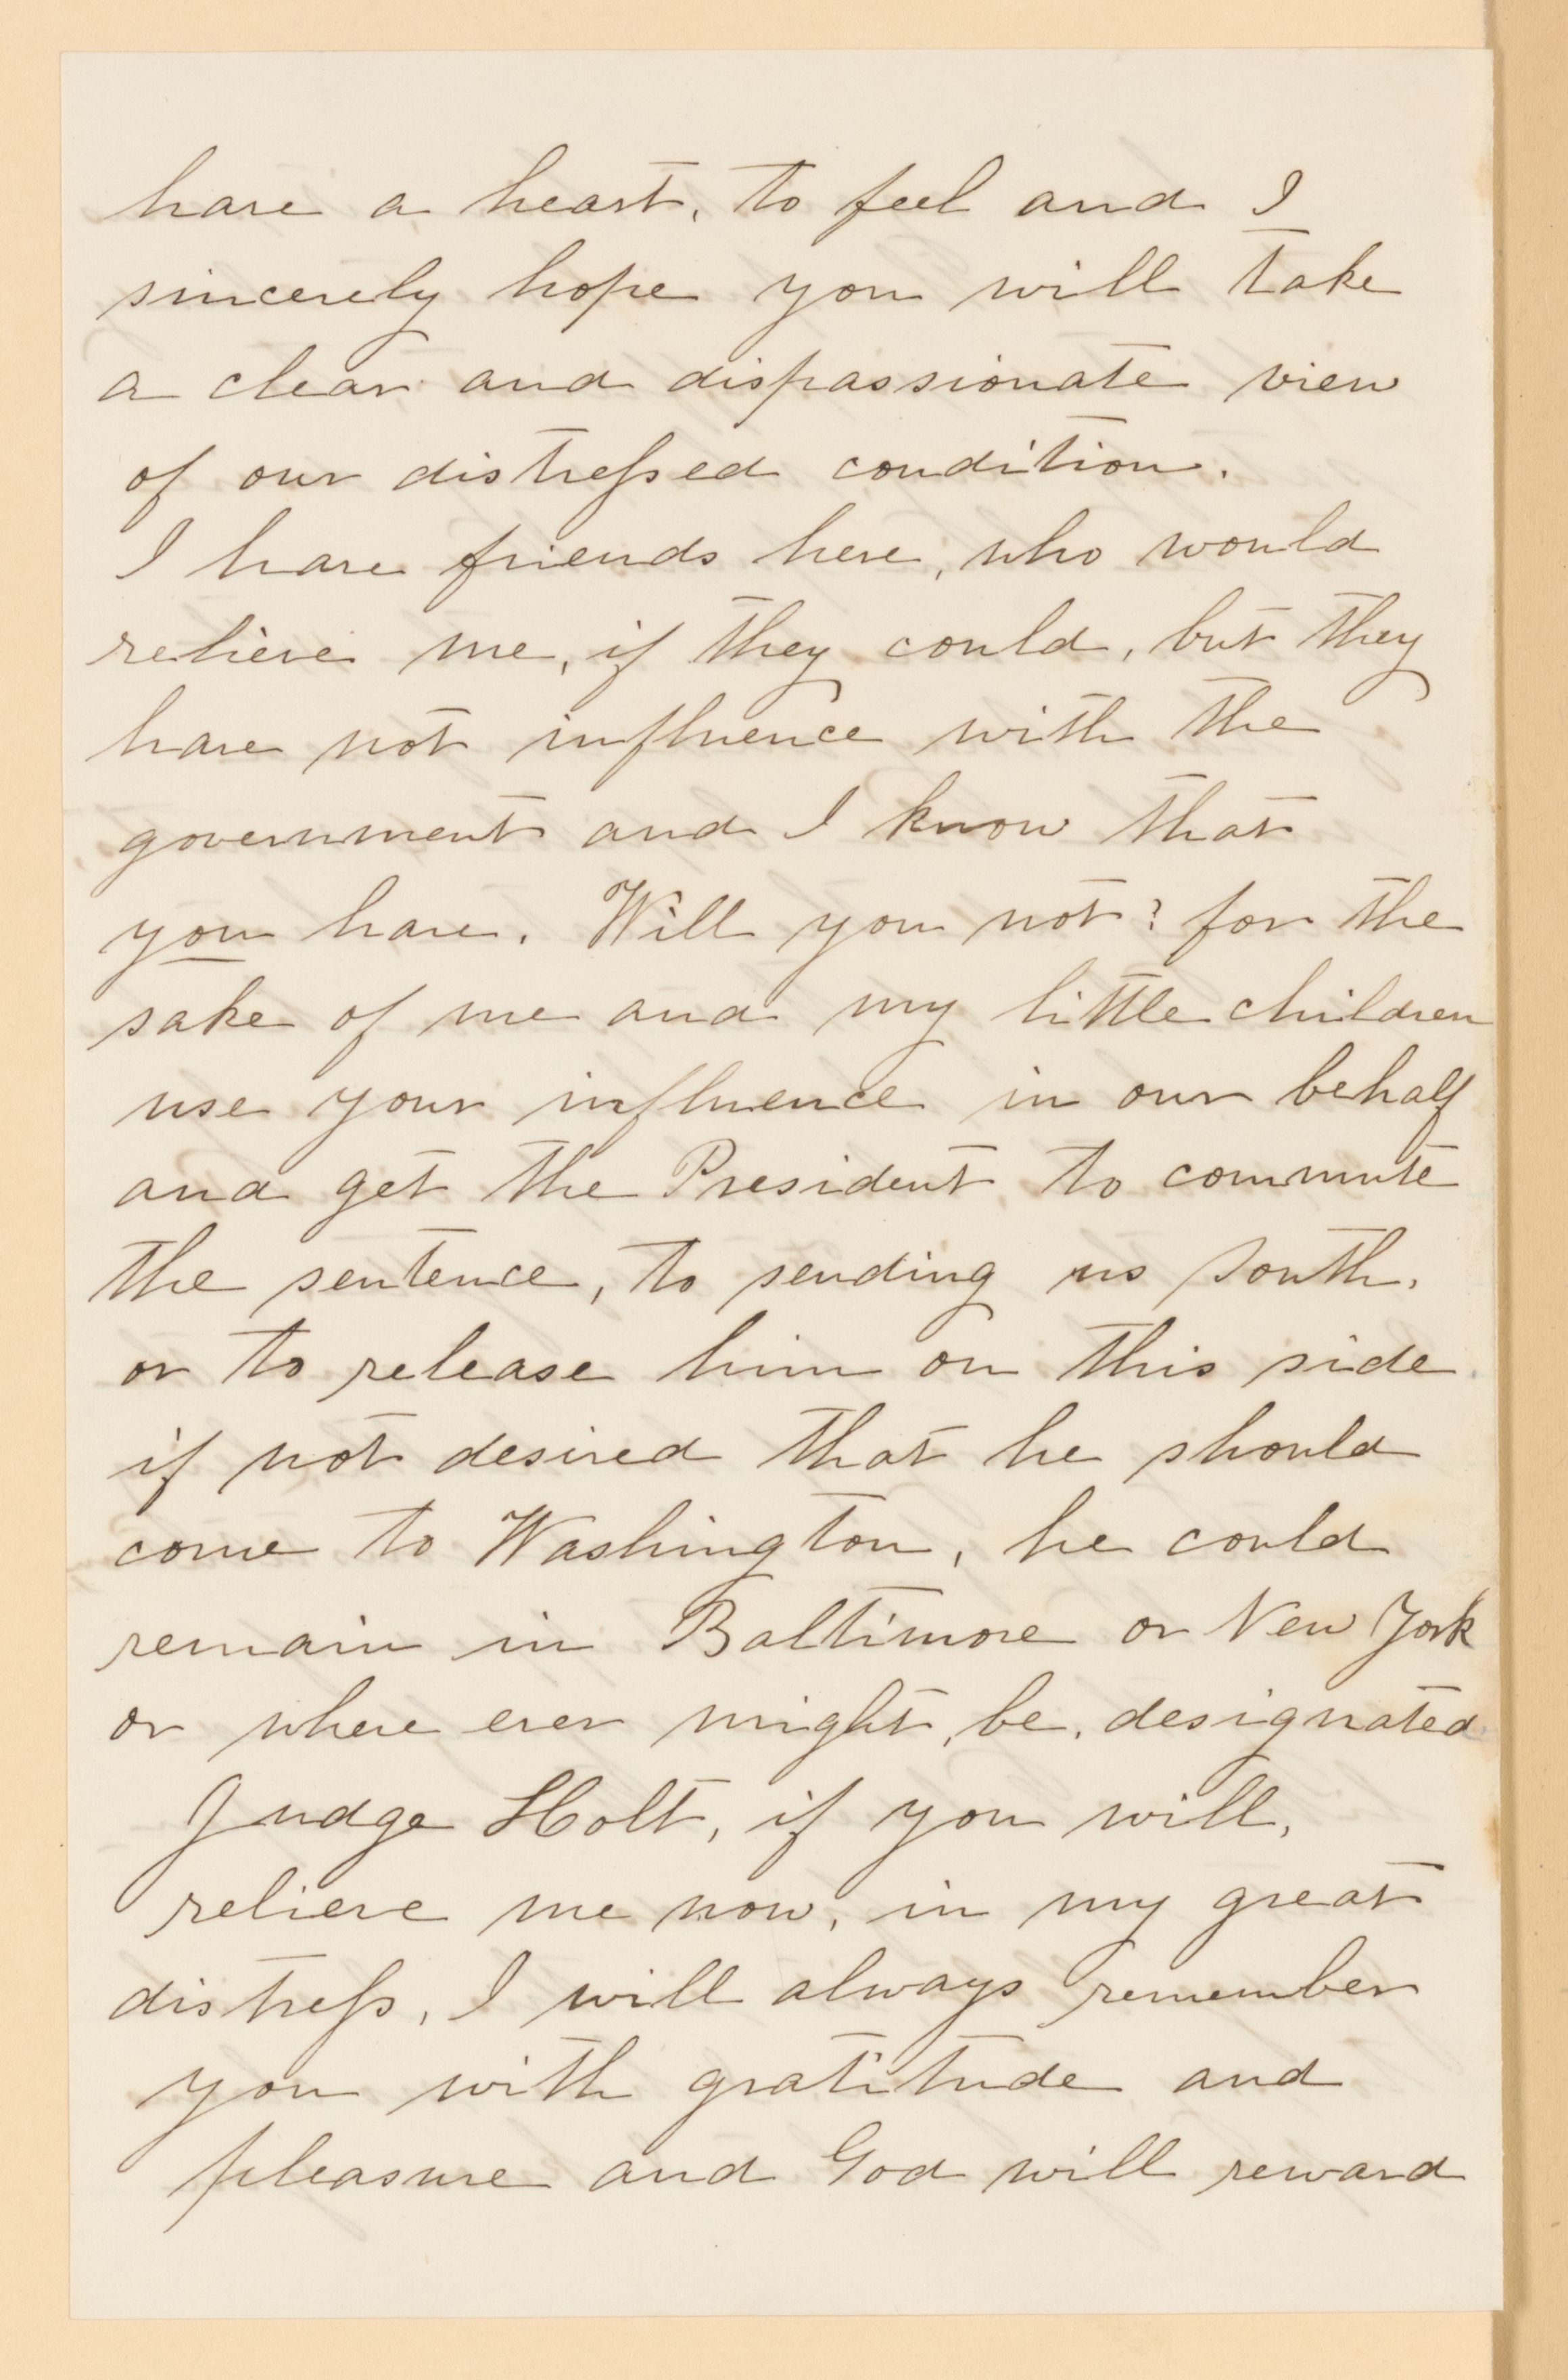 have a heart, to feel and I
sincerely hope you will take
a clear and dispassionate view
of our distreſsed condition.
I have friends here, who would
relieve me, if they could, but they
have not influence with the
government and I know that
you have. Will you not? for the
sake of me and my little children
use your influence in our behalf
and get the President to commute
the sentence, to sending us South,
or to release him on this side
if not desired that he should
come to Washington, he could
remain in Baltimore or New York
or where ever might, be, designated
Judge Holt, if you will,
relieve me now, in my great
distreſs, I will always remember
you with gratitude and
pleasure and God will reward